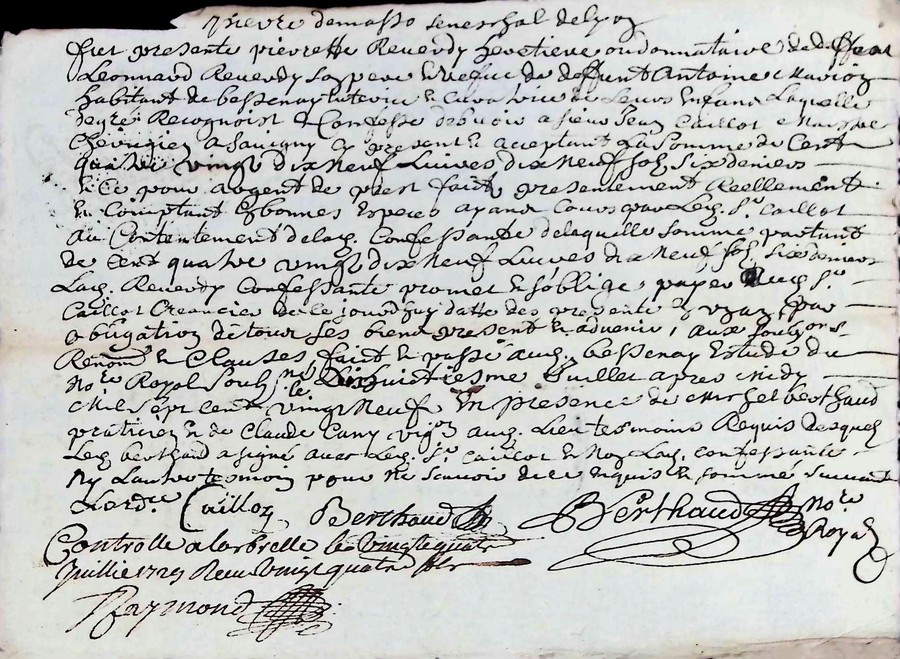 demasso seneschal de lyon
fut presente pierrette Reverdy heretiere ou donnataire de d. 
Leonnard Reverdy son pere & vefve de deffunt Antoine 
habitant de bessenay tutrice & curatrice de Leurs Enfans Laquelle
de gre Recognoist & Confesse debvoir a sieur Jean Caillot 
Chirurgien a Savigny cy present & acceptant La Somme de Cent
quatre vingt dix Neuf Livres dix Neuf sols six deniers
& Ce pour argent de prest fait presentement Reellement
En Comptant & bonnes Especes ayant Cours par Led. Sr. Caillot
au Contentement de lad. Confessante de laquelle somme partant
de Cent quatre vingt dix Neuf Livres dix Neuf sols six deniers
Lad. Reverdy Confessante promet & s'oblige payer Aud. Sr.
Caillot Creancier de ce jourdhuy datte des presente En par
obligation de tous ses biens present & advenir, aux 
Renon. & Clauses fait & passé aud. bessenay Estude du
No.re Royal soub.ne le dixhuictiesme Juillet apres Midy
Mil Sept Cent vingt Neuf En presence de Michel berthaud
praticien & de Claude Cuny vig.on aud. Lieu tesmoins Requis desquels
Led. berthaud a signé avec Led. Sr. Caillot & Non Lad. confessante
Ny Lautre tesmoin pour ne scavoir de ce Enquis & sommé suivant
Lord.ce Caillot Berthaud Berthaud No.re
Royal
Controllé a larbrelle le vingt quatre
Juillie 1729 Receu vingt quatre sols
Raymond